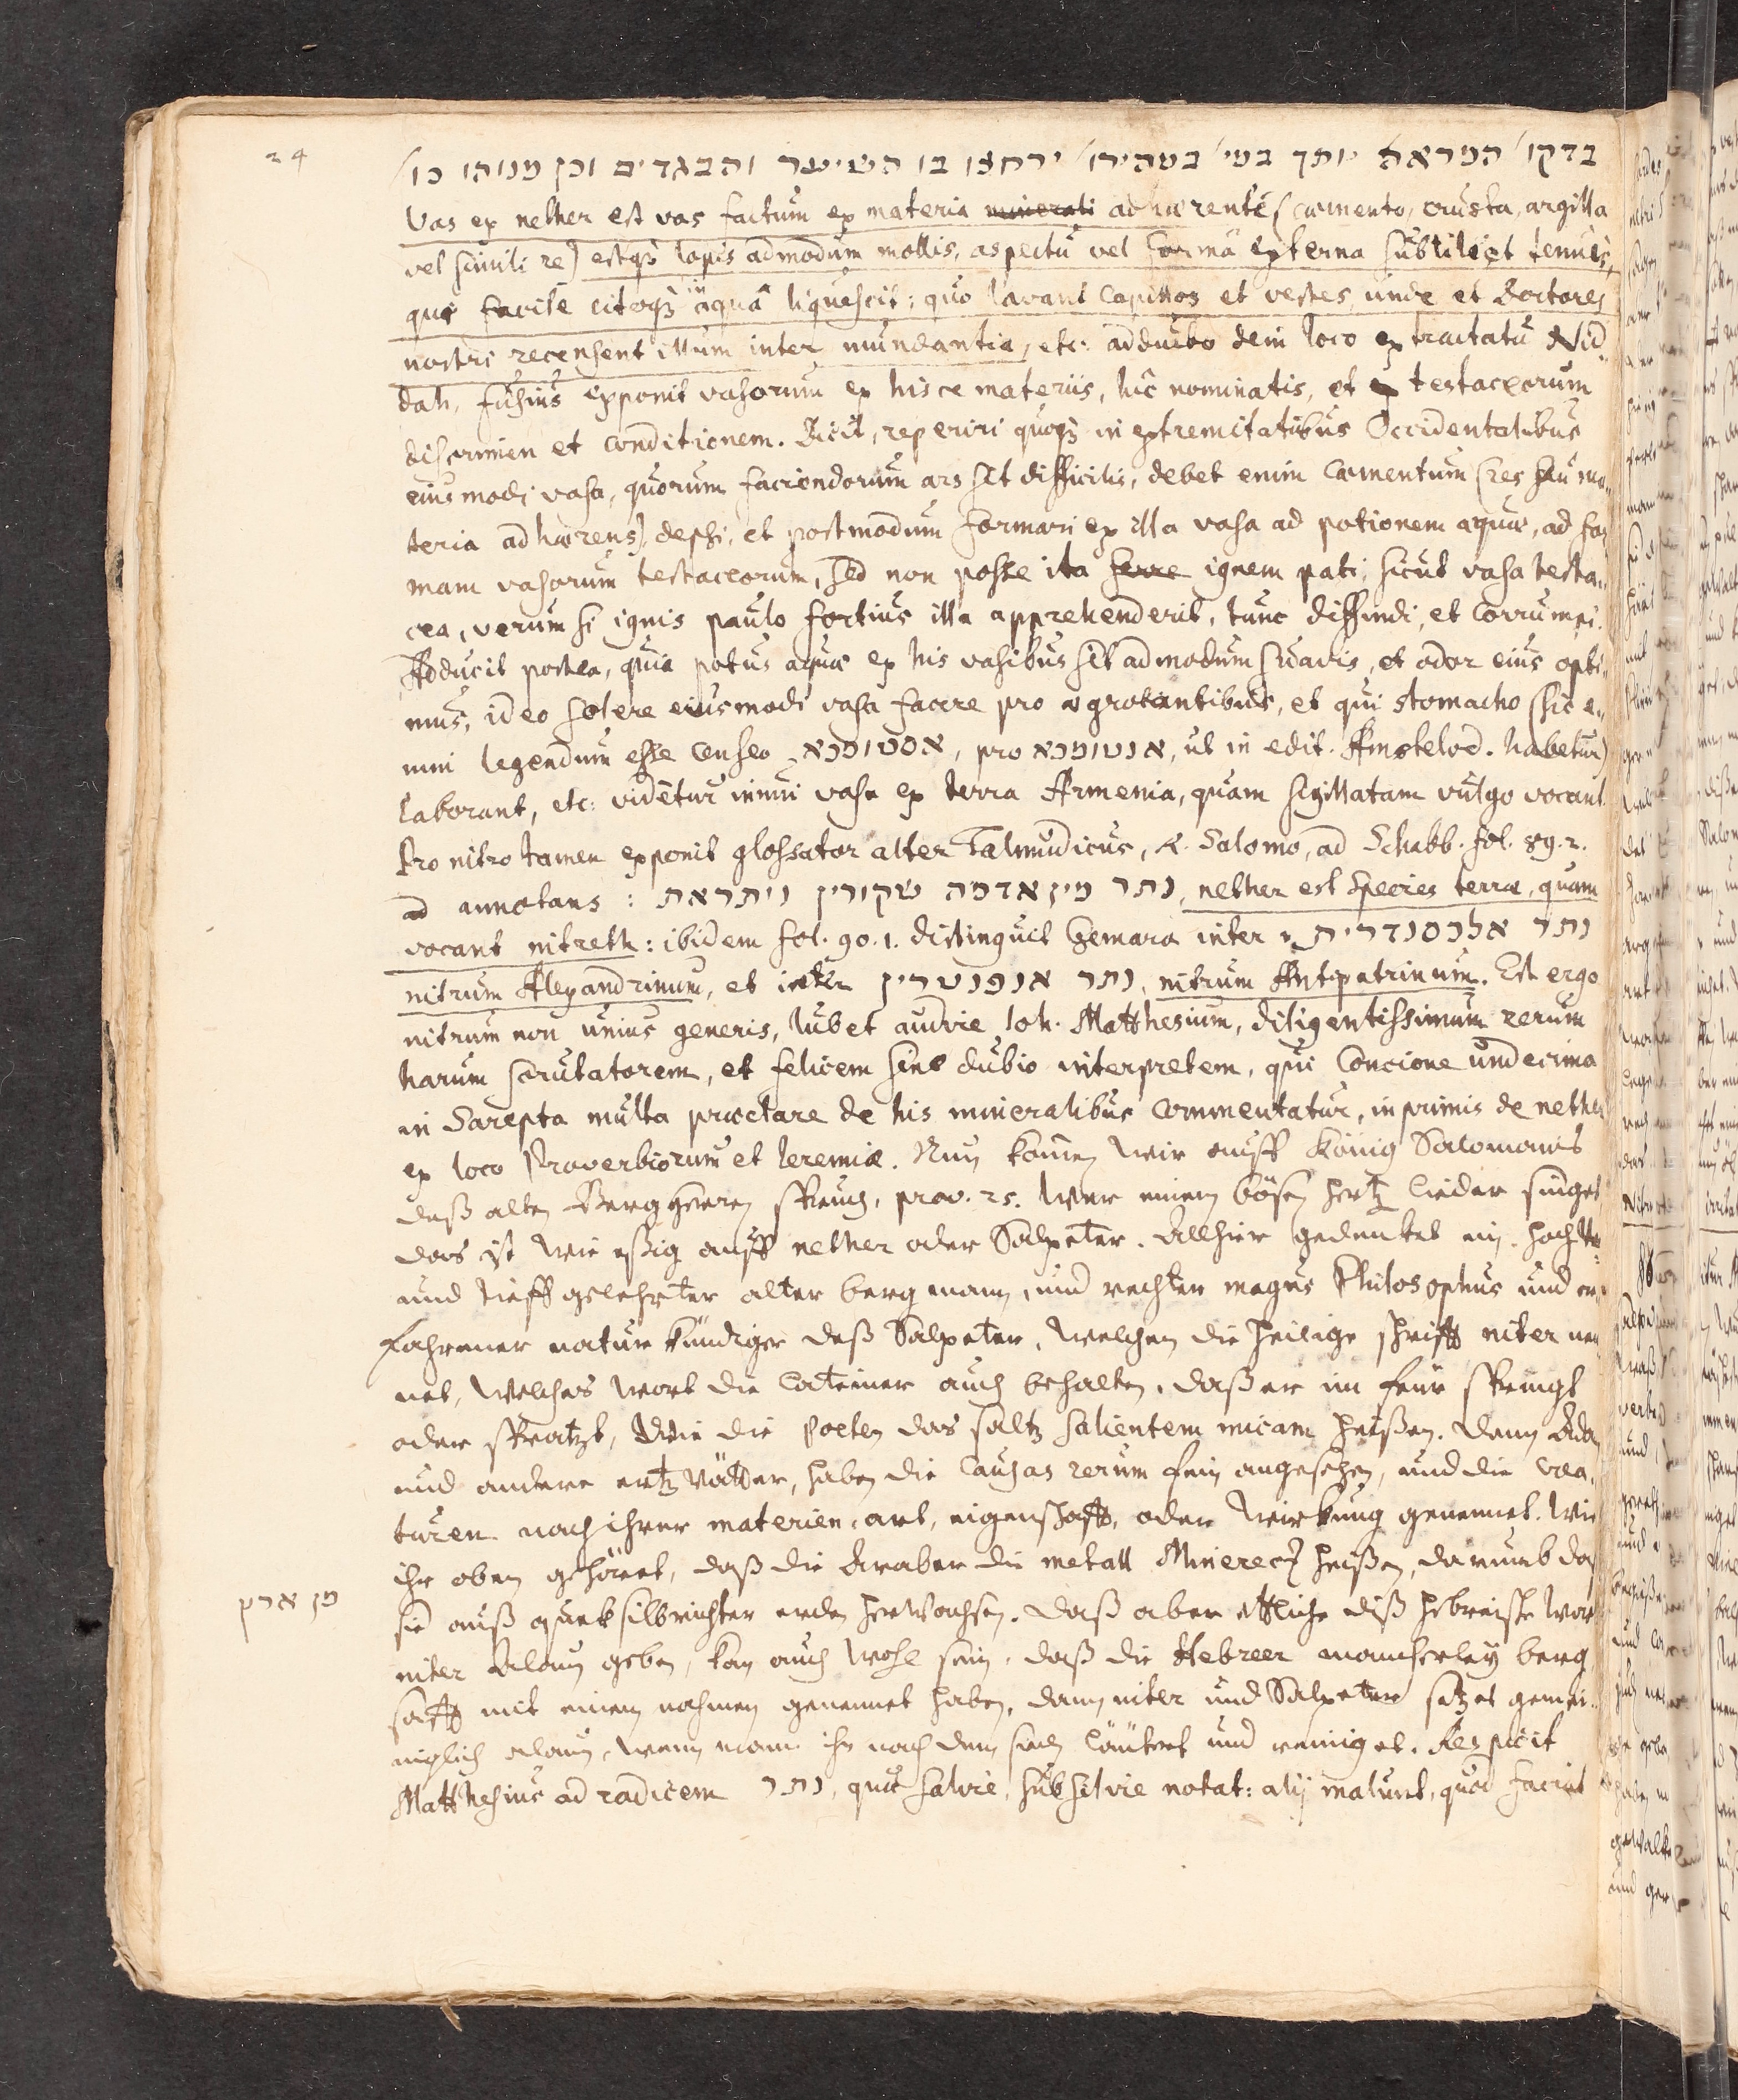 24
בדקו׳ המראה יותך במי׳ במהירו׳ ירחצו בו השיער והבגדים וכן מנוהו כו׳
Vas ex nether est vas factum ex materia minerali adhærente (cæmento, crusta, argilla
vel simili re) estqȝ lapis admodum mollis, aspectu vel forma externa subtilis et tenuis,
qui facile citoqȝ in aquâ liquescit: quo lavant capillos et vestes, unde et Doctores
nostri recensent illum inter mundantia, etc: adducto dein loco ex tractatu Nid-
dah, fusius exponit vasorum ex hisce materiis, hîc nominatis, et ex testaceorum
discrimen et conditionem. Dicit, reperiri quoqȝ in extremitatibus Occidentalibus
eiusmodi vasa, quorum faciendorum ars sit difficilis, debet enim cæmentum (res seu ma-
teria adhærens) depsi, et postmodum formari ex illa vasa ad potionem aquæ, ad for-
mam vasorum testaceorum, sed non posse ita ferre ignem pati, sicut vasa testa-
cea, verum si ignis paulo fortius illa apprehenderit, tunc diffindi, et corrumpi.
Adducit postea, quia potus aquæ ex his vasibus sit admodum suavis, et odor eius opti-
mus, ideo solere eiusmodi vasa facere pro ægrotantibus, et qui stomacho (sic e-
nim legendum esse censeo אסטומכא, pro אנטומכא, ut in edit. Amstelod. habetur)
laborant, etc: videtur innui vasa ex terra Armenia, quam sigillatam vulgo vocant.
Pro nitro tamen exponit glossator alter Talmudicus, R. Salomo, ad Schabb. fol. 89. 2.
ad annotans: נתר מין אדמה שקורין ניתראת, nether est species terræ, quam
vocant nitreth: ibidem fol. 90. 1. distinguit Gemara inter נתר אלכסנדרית
nitrum Alexandrinum, et inter נתר אנפנטרין, nitrum Antipatrinum. Est ergo
nitrum non unius generis, lubet audire Joh. Matthesium, diligentissimum rerum
harum scrutatorem, et felicem sine dubio interpretem, qui Concione undecima
in Sarepta multa præclare de his mineralibus commentatur, inprimis de nether
ex loco Proverbiorum et Ieremiæ. Nun komen wir auff König Salomonis
deß alten Bergherren spruch, prov. 25. Wer einem bösen hertz lieder singet,
das ist wie eßig auff nether oder Salpeter. Allhier gedencket ein hoch
und tieff gelehrter alter bergmann, und rechter magus Philosophus und er-
fahrener naturkündiger deß Salpeter, welchen die heilige schrifft niter nen-
net, welches wort die Lateiner auch behalten, daß er im feur springt
oder spratzt, Wie die Poeten das saltz salientem micam heißen. Dann Adam
und andere ertz vätter, haben die Causas rerum fein angesehen, und die crea-
turen nach ihrer materien, art, eigenschafft, oder wirkung genennet. Wie
ihr oben gehöret, daß die Araber die metall Minerez heißen, darumb das
מן ארץ
sie auß quecksilbrichter erden herwachsen. Daß aber ettliche diß hebreische wort
niter Alaun geben, kan auch wohl sein, daß die Hebreer mancherley berg
safft mit einem nahmen genennet haben, dann niter und Salpeter setzet gemei-
niglich alaun, wenn mans ihr nach dem sieden läutert und reiniget. Respicit
Matthesius ad radicem נתר, quæ salire, subsilire notat: alij malunt, quod faciat